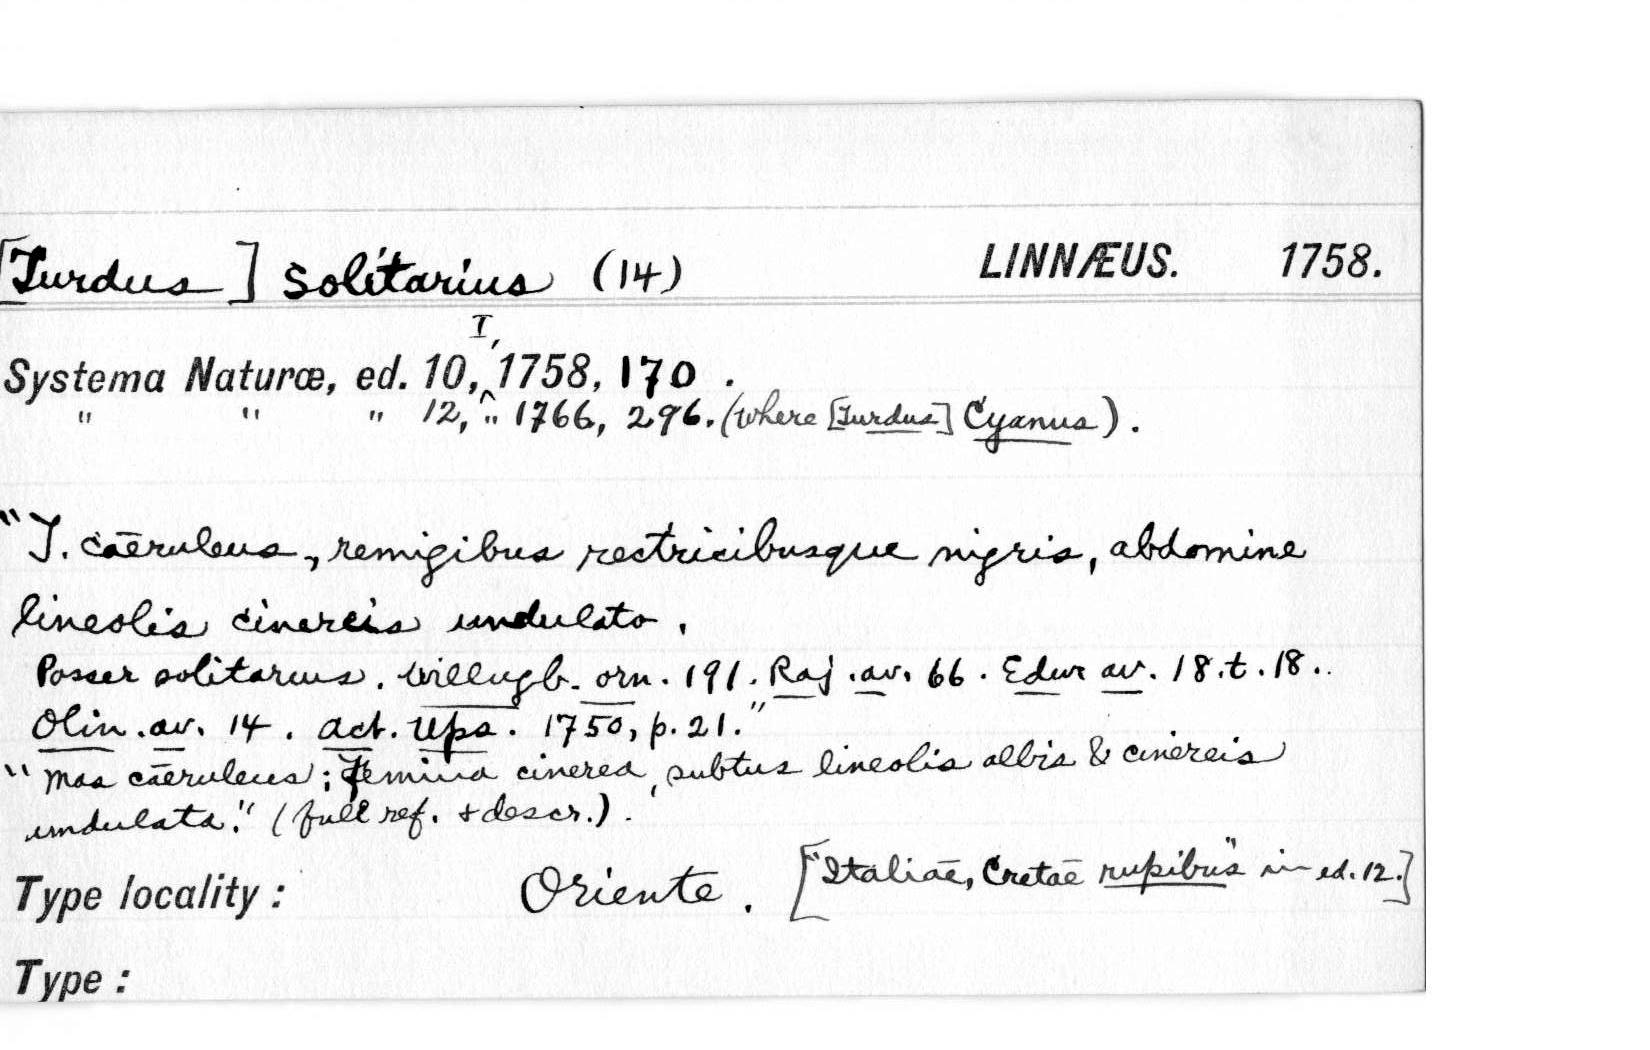 [Turdus] solitarius (14) LINNÆUS. 1758.
I,
Systema Naturæ, ed. 10,^1758, 170.
" " " 12, " 1766, 296. (where [Turdus] Cyanus).
"T. caeruleus, remigibus rectricibusque nigris, abdomine
lineolis cinereis undulato.
Passer solitarius. Willugb. orn. 191. Raj. av. 66. Edw av. 18. t. 18..
Olin. av. 14. Act. Ups. 1750, p. 21."
"Mas cāeruleus; Femina cinerea, subtus lineolis albis & cinereis
undulata." (full ref. + descr.).
Type locality: Oriente. ["Italiāe, Cretāe rupibus" in ed. 12.]
Type: